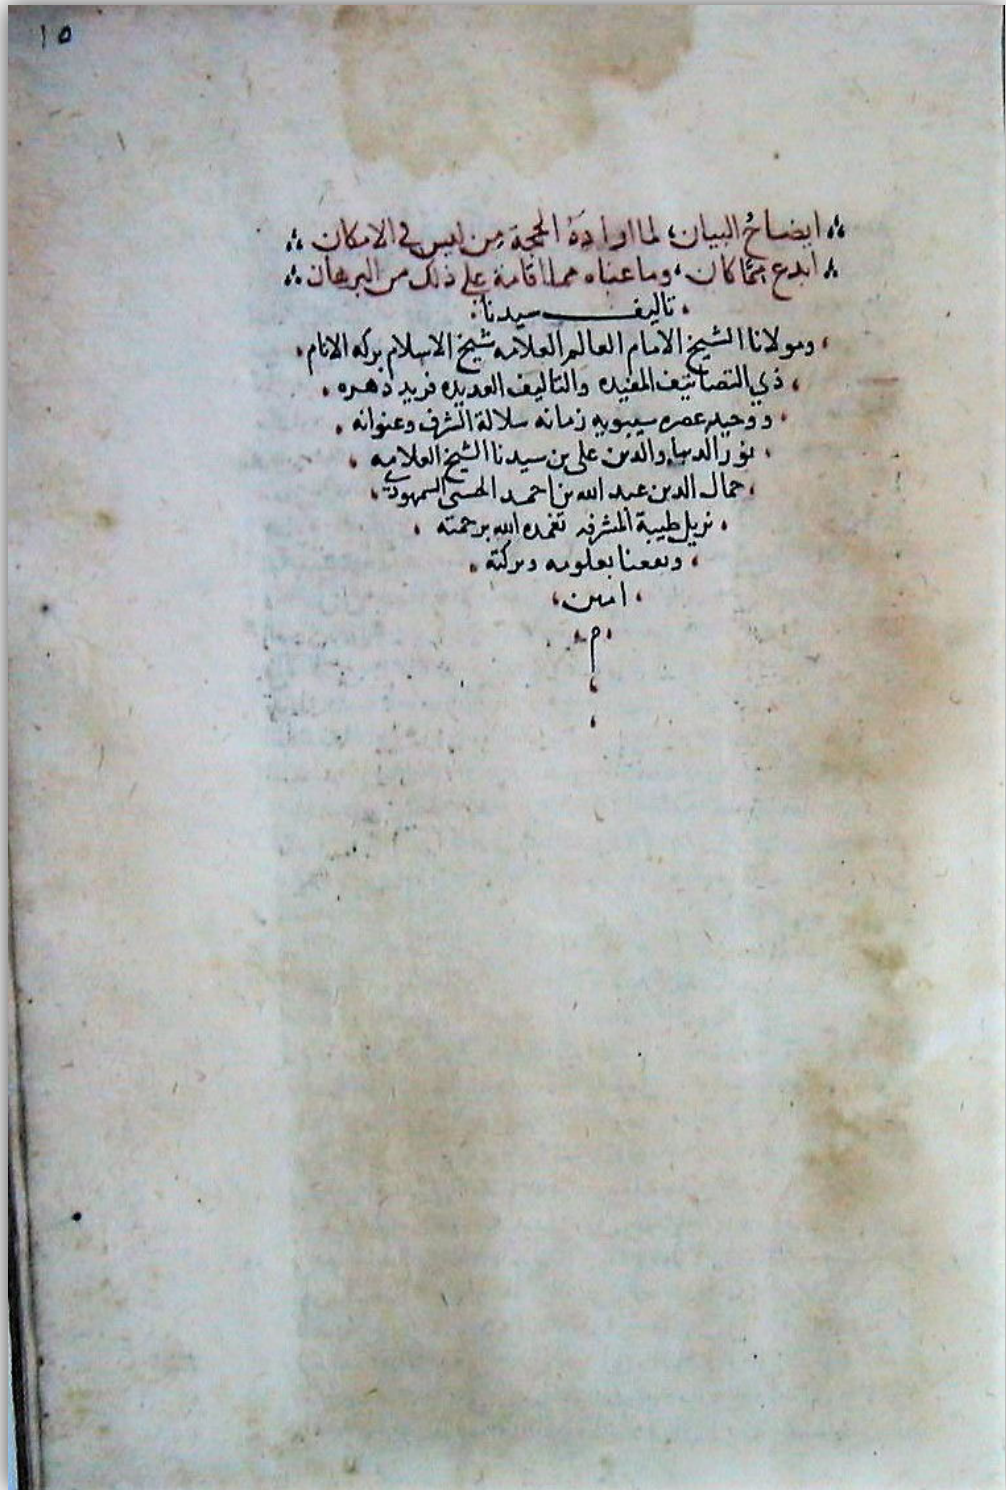 ١٥
ايضاحُ البيان، لما ارادَهُ الحجة من ليس في الامكان
ابدع ممّا كان، وما عناه مما اقامه علي ذلك من البرهان
تاليف سيدنا
ومولانا الشيخ الامام العالم العلامه شيخ الاسلام بركه الانام
ذي التصانيف المفيده والتاليف العديده فريد دهره
ووحيد عصره سيبويه زمانه سلالة الشرف وعنوانه
نور الدنيا والدين على بن سيدنا الشيخ العلامه
جمال الدين عبد الله بن احمد الحسنى السمهودي
نزيل طيبة المشرفه تغمده الله برحمته
ونفعنا بعلومه وبركته
امين
م